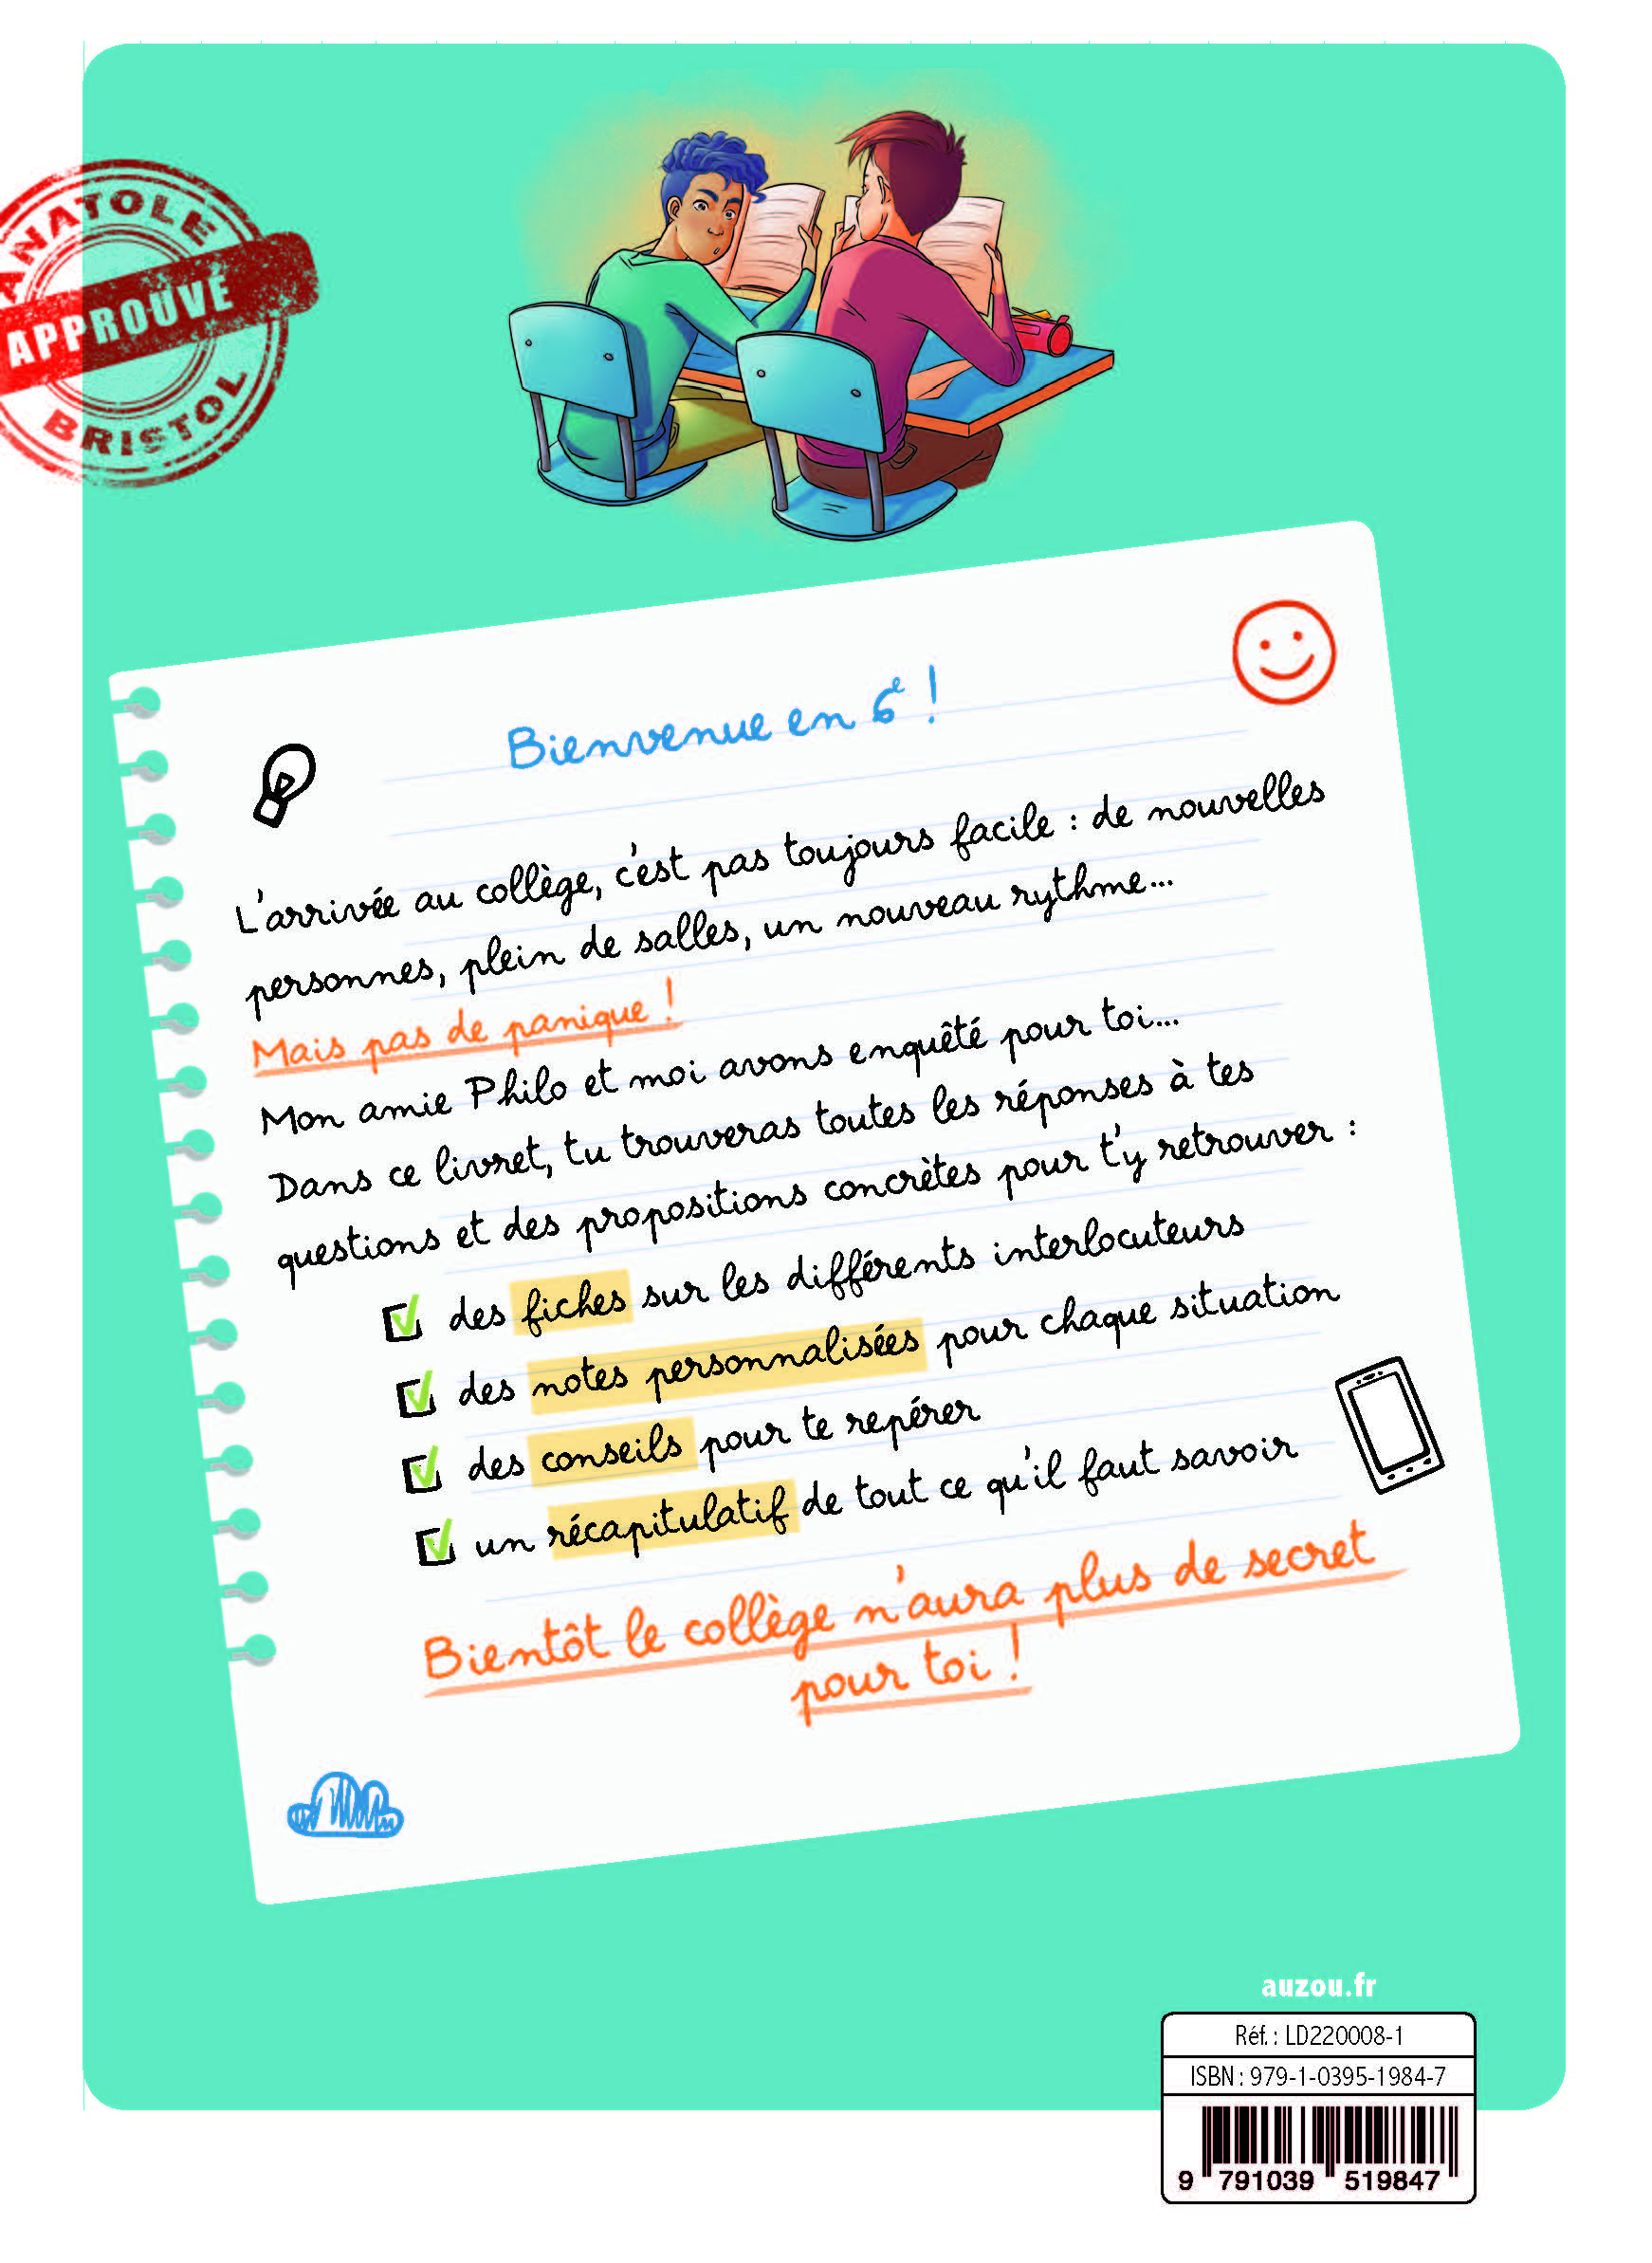 ANATOLE
APPROUVÉ
BRISTOL
Bienvenue en 6e !
L'arrivée au collège, c'est pas toujours facile : de nouvelles
personnes, plein de salles, un nouveau rythme...
Mais pas de panique !
Mon amie Philo et moi avons enquêté pour toi...
Dans ce livret, tu trouveras toutes les réponses à tes
questions et des propositions concrètes pour t'y retrouver :
des fiches sur les différents interlocuteurs
des notes personnalisées pour chaque situation
des conseils pour te repérer
un récapitulatif de tout ce qu'il faut savoir
Bientôt le collège n'aura plus de secret
pour toi !
auzou.fr
Réf. : LD220008-1
ISBN : 979-1-0395-1984-7
9 791039 519847